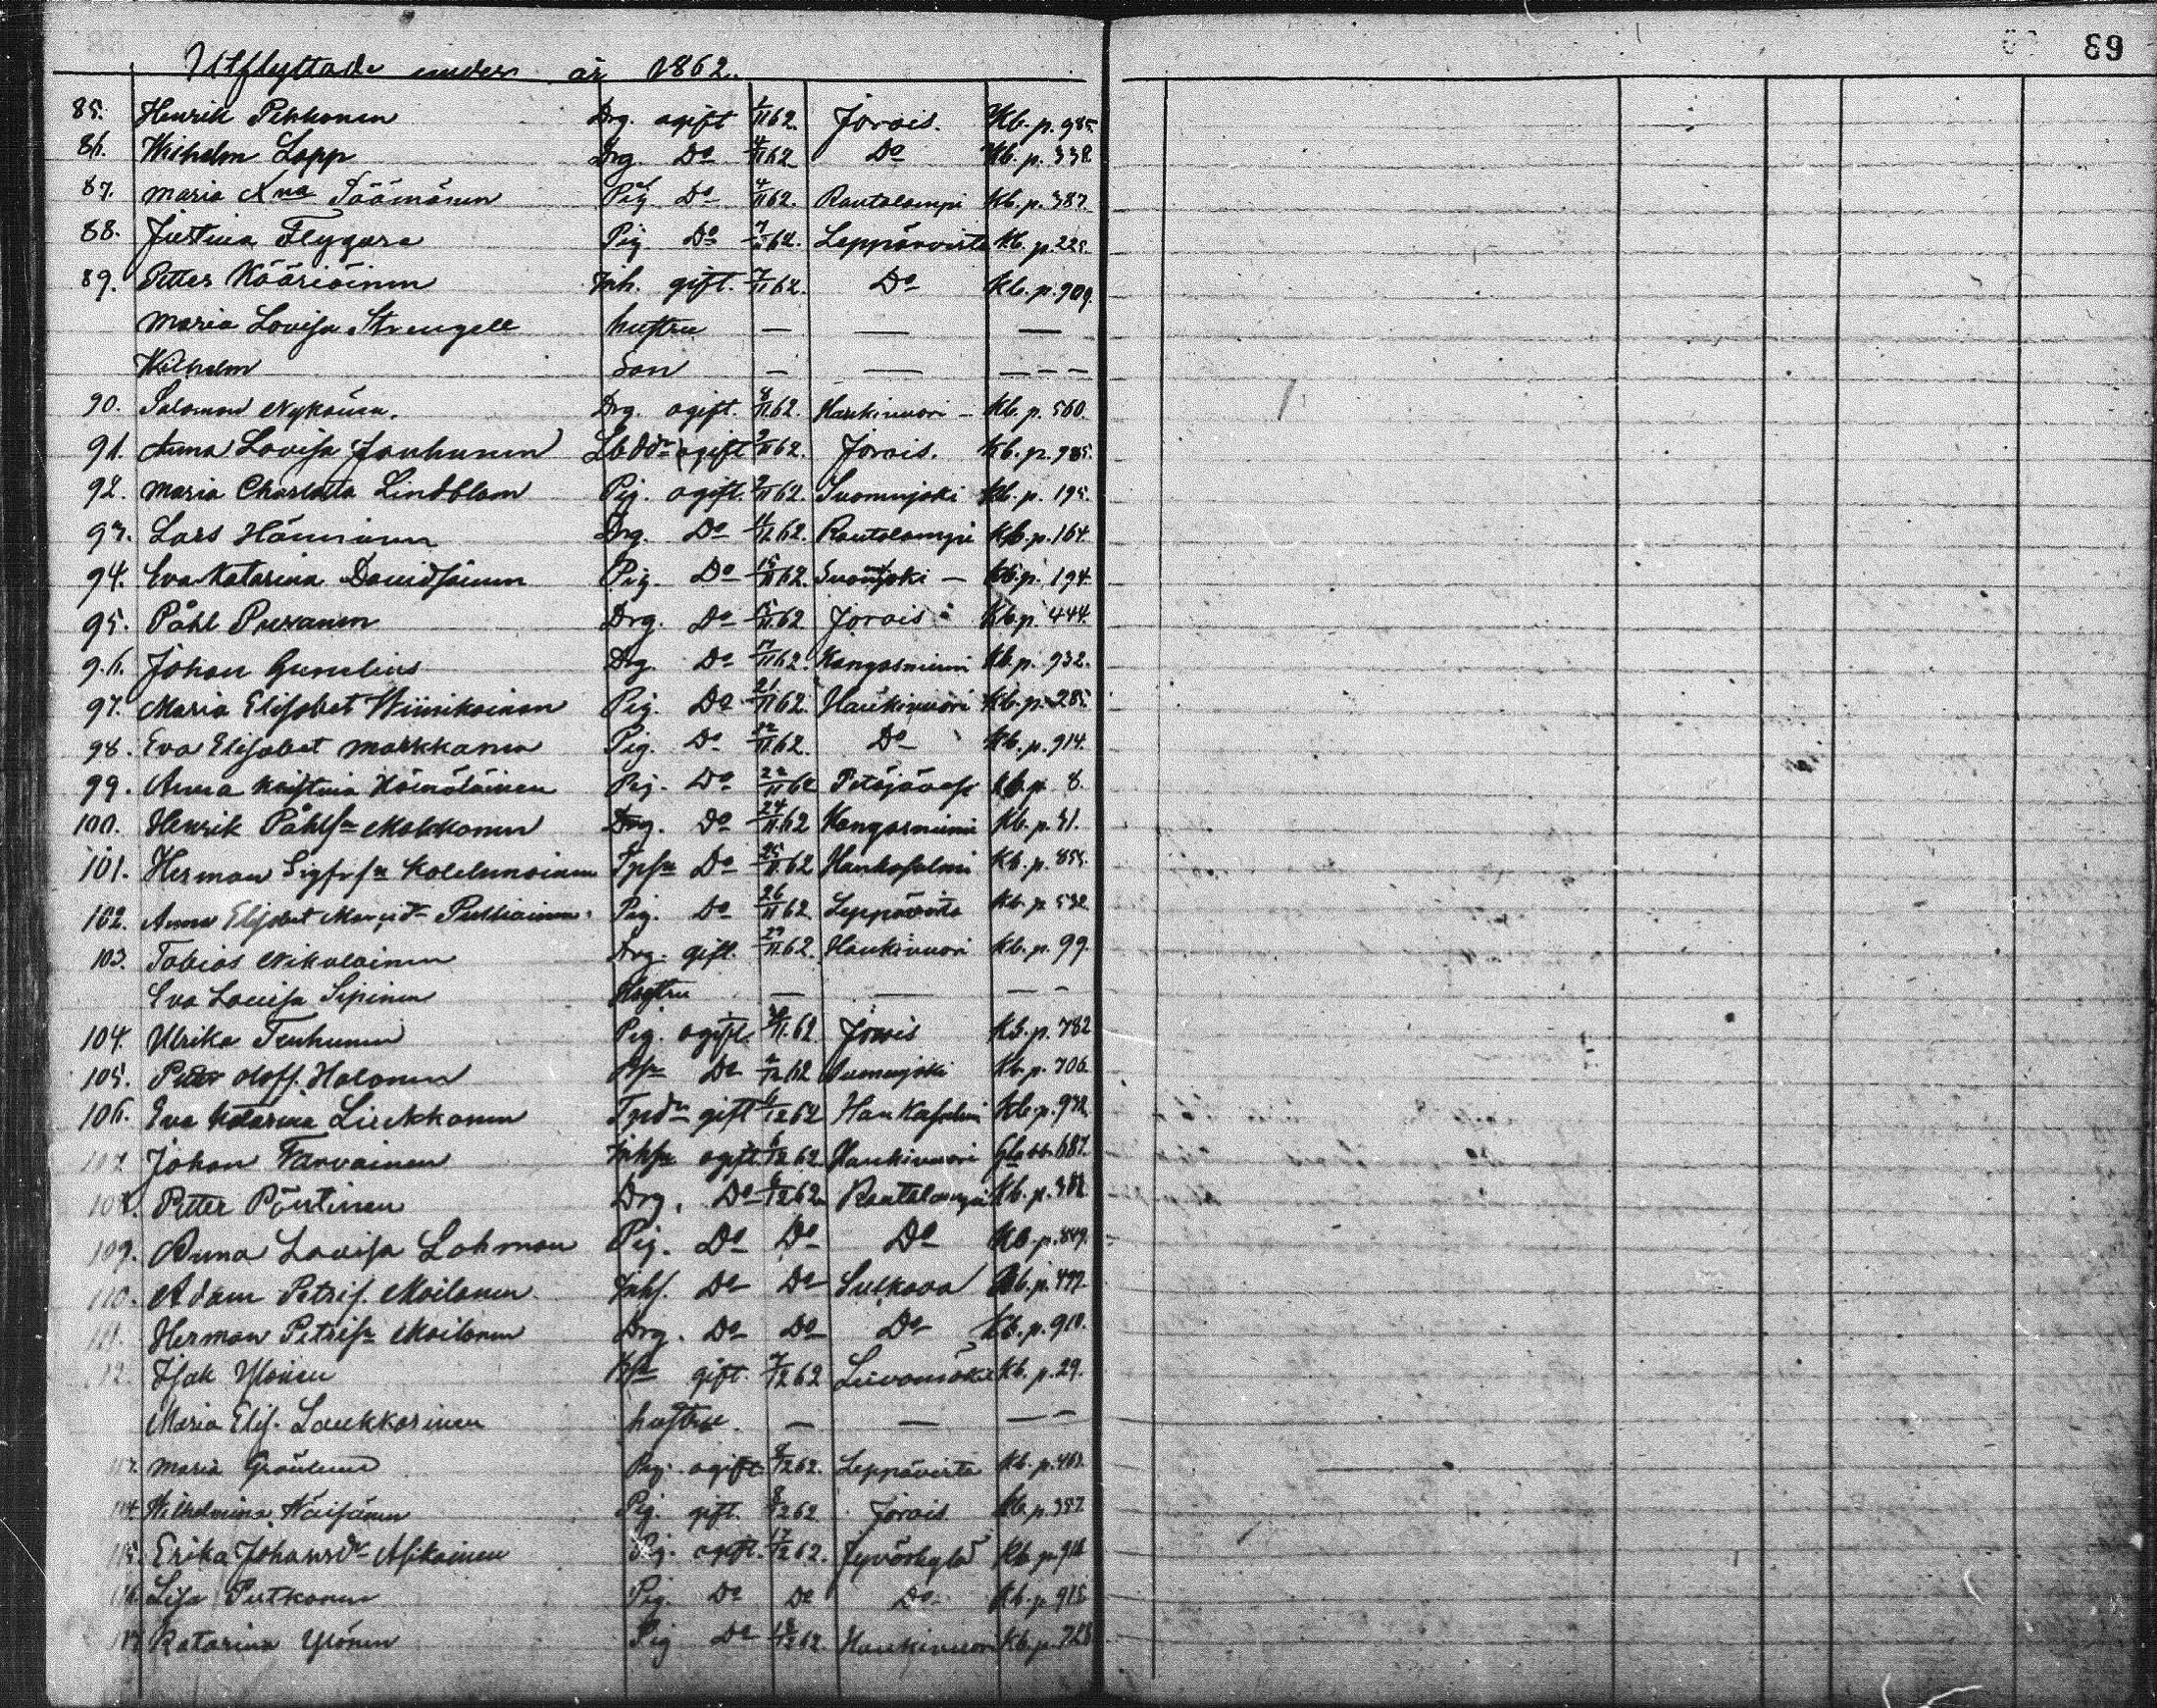 89
Utflyttade under år 1862.
85. Henrik Pekkonen Drg. ogift 1/11 62. Jorois. Kb. p. 985.
86. Wilhelm Lapp Drg. Do 4/11 62 Do Kb. p. 338.
87. Maria Kna Pig. Do 4/11 62. Rautalampi Kb. p. 387.
88. Justina Flygare Pig. Do 7/11 62. Leppävirta Kb. p. 225.
89. Petter Kääriäinen Inh. gift. 7/11 62. Do Kb. p. 909.
Maria Lovisa Strengell hustru — — —
Wilhelm Son — — — — —
90. Salomon Nykänen. Drg. ogift. 8/11 62. Haukivuori — Kb. p. 560.
91. Anna Lovisa Jauhunen ogift 9/11 62. Jorois. Kb. p. 985.
92. Maria Charlotta Lindblom Pig. ogift. 9/11 62. Suonnejoki Kb. p. 195.
93. Lars Hänninen Drg. Do 11/11 62. Rautalampi Kb. p. 164.
94. Eva Katarina Davidsainen Pig. Do 15/11 62. Suonnejoki — Kb. p. 194.
95. Påhl Puranen Drg. Do 15/11 62 Jorois Kb. p. 444.
96. Johan Gumelius Drg. Do 17/11 62. Kangasniemi Kb. p. 932.
97. Maria Elisabet Wiinikainen Pig. Do 21/11 62. Haukivuori Kb. p. 285.
98. Eva Elisabet Markkanen Pig. Do 22/11 62. Do Kb. p. 914.
99. Anna Kristina Hämäläinen Pig. Do 22/11 62 Petäjävesi Kb. p. 8.
100. Henrik Påhlsn Makkonen Drg. Do 24/11 62 Kangasniemi Kb. p. 41.
101. Herman Sigfrsn Kolehmainen Do 25/11 62 Hankasalmi Kb. p. 855.
102. Anna Elisabet Pulliainen. Pig. Do 26/11 62 Leppävirta Kb. p. 532.
103. Tobias Nikulainen Drg. gift. 29/11 62. Haukivuori Kb. p. 99.
Eva Lovisa Sipinen Hustru — — — —
104. Ulrika Tenhunen Pig. ogift. 62. Jorois Kb. p. 782
105. Petter Oloff. Halonen Do 2/12 62 Suonnejoki Kb. p. 706.
106. Eva Katarina Liukkonen gift 6/12 62 Hankasalmi Kb. p. 972.
107. Johan Tarvainen Inhsn ogift. 6/12 62. Haukivuori 687.
108. Petter Pöntinen Drg. Do 6/12 62. Rautalampi Kb. p. 388.
109. Anna Lovisa Lohman Pig. Do Do Do Kb. p. 849.
110. Adam Petris. Moilanen Inhs. Do Do Sulkava Kb. p. 497.
111. Herman Petrisn Moilanen Drg. Do Do Do Kb. p. 910.
112. Isak Ylönen gift. 7/12 62 Leivomäki Kb. p. 29.
Maria Elis. Laukkarinen hustru. — — — —
113. Maria Grönlund Pig. ogift 8/12 62. Leppävirta Kb. p. 463.
114. Wilhelmina Wäisänen Pig. gift. 8/12 62 Jorois Kb. p. 357.
115. Erika Johansdr Asikainen Pig. ogift. 17/12 62. Jyväskylä Kb. p. 918
116. Lisa Putkonen Pig. Do Do Do Kb. p. 915
117. Katarina Ylönen Pig Do 18/12 62 Haukivuori Kb. p. 728